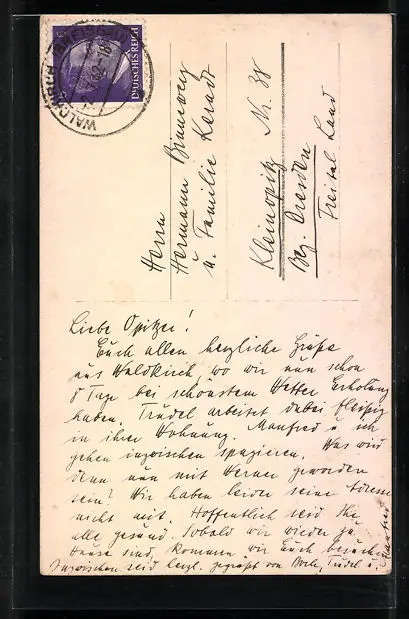 WALDKIRCH BREISGAU
DEUTSCHES REICH
Herrn
Hermann
u. Familie
Kleinopitz Nr. 38
Bez. Dresden
Freital Land
Liebe Opitzer!
Euch allen herzliche Grüße
aus Waldkirch, wo wir nun schon
8 Tage bei schönstem Wetter Erholung
haben. Trudel arbeitet dabei fleißig
in ihrer Wohnung. Manfred u. ich
gehen inzwischen spazieren. Was wird
denn nun mit Werner geworden
sein? Wir haben leider seine Adresse
nicht mit. Hoffentlich seid Ihr
alle gesund. Sobald wir wieder zu
Hause sind, kommen wir Euch besuchen
Inzwischen seid herzl. gegrüßt von Trudel u.
Manfred